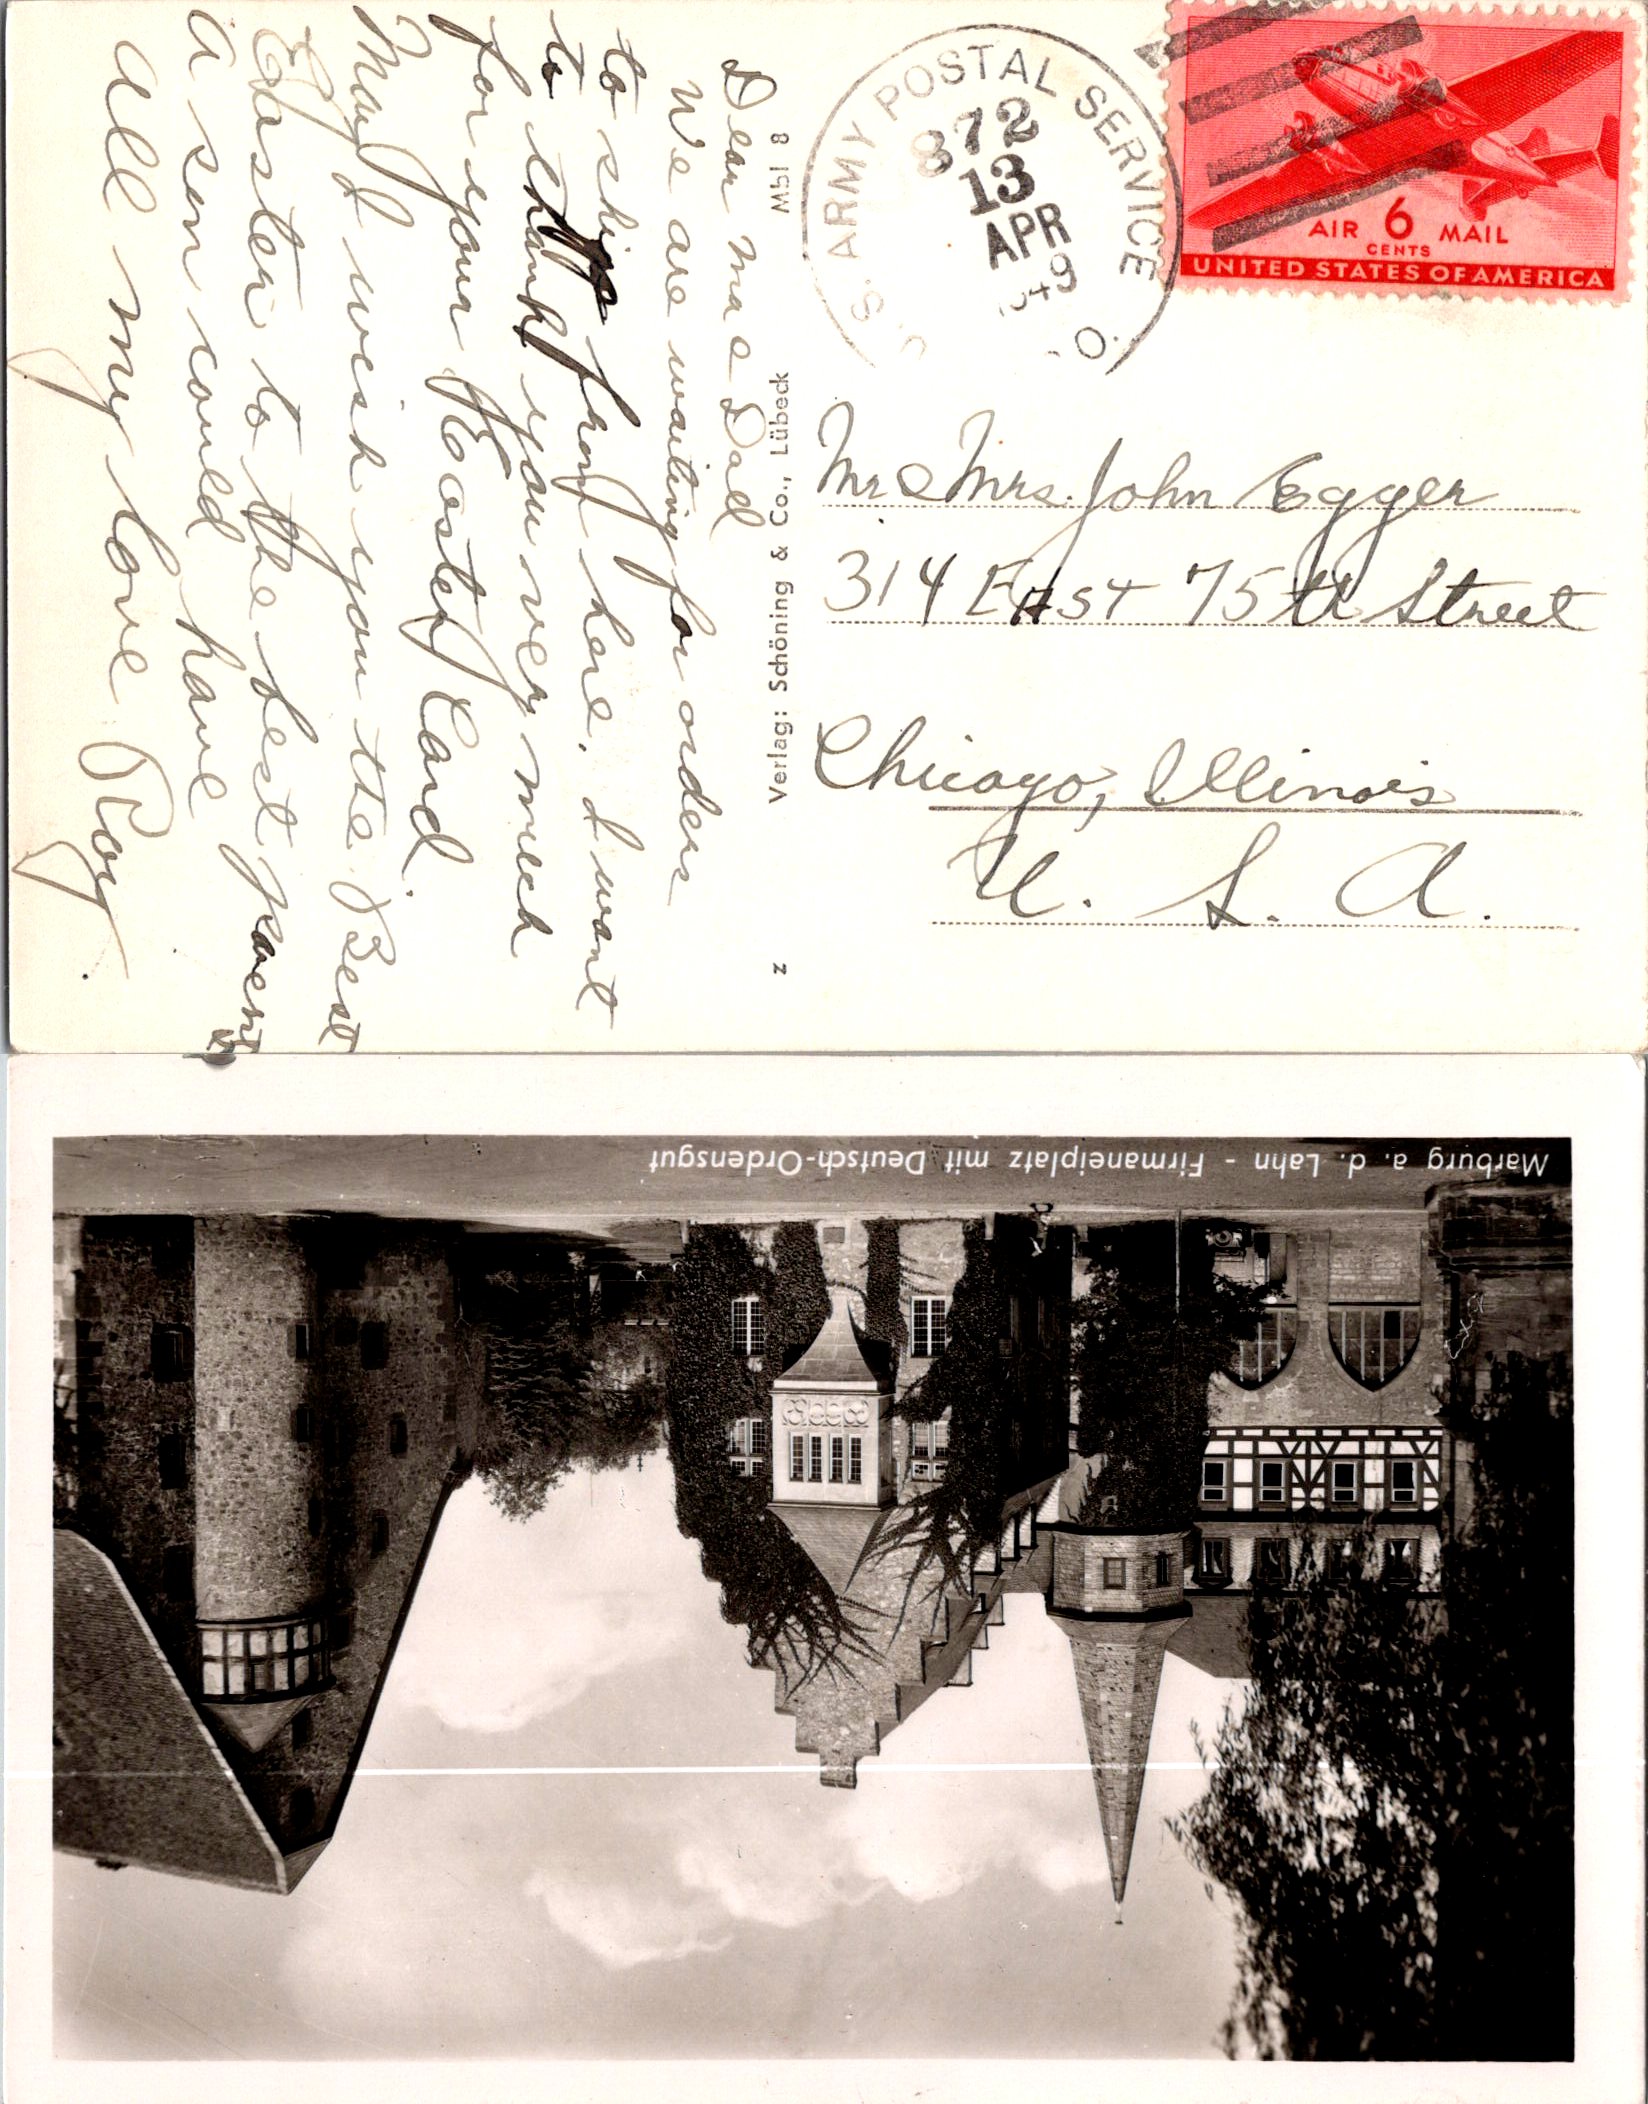 Dear Ma & Dad
We are waiting for orders
to ship from here. I want
to thank you very much
for your Easter Card.
May I wish you the Best
Easter to the best parents
a son could have
All my love Roy.
Mbl 8
Verlag: Schöning & Co., Lübeck
z
U.S. ARMY POSTAL SERVICE
872
13
APR
AIR 6 MAIL
CENTS
UNITED STATES OF AMERICA
Mr & Mrs. John Egger
314 EAST 75th Street
Chicago, Illinois
U. S. A.
Marburg a. d. Lahn - Firmaneiplatz mit Deutsch-Ordensgut